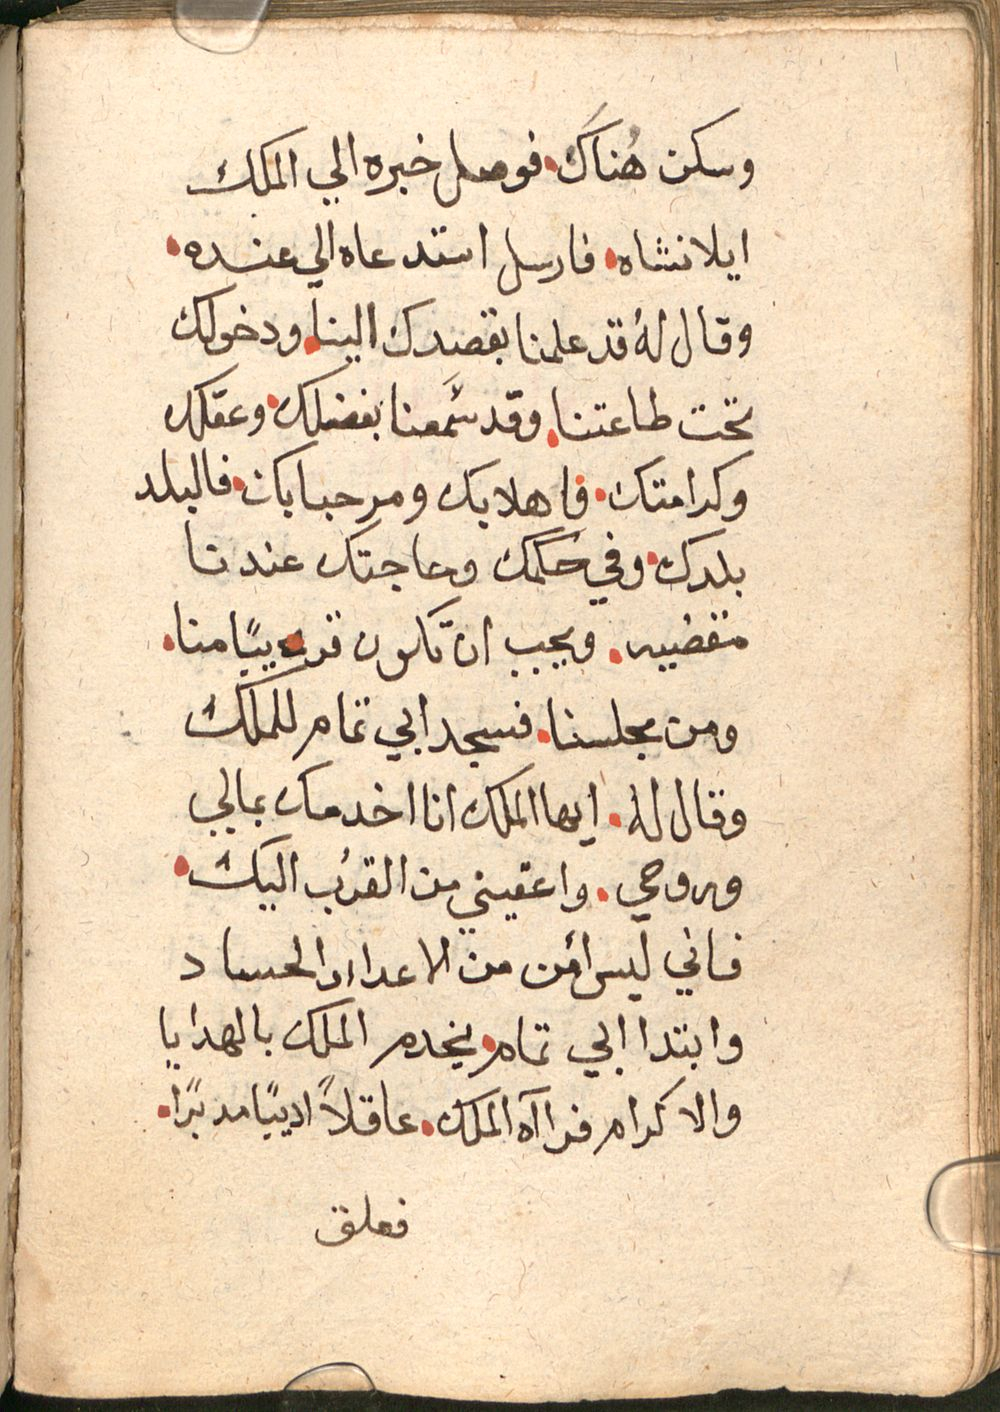 وسكن هُناكَ. فوصل خبره الي الملك
ايلانشاه. فارسل استدعاه الي عنده.
وقال لهُ قد علمنا بقصدك الينا. ودخولك
تحت طاعتنا. وقد سَمعنا بفضلك. وعقلك
وكرامتك. فاهلا بك ومرحبا بك. فالبلد
بلدك. وفي حُكمك وحاجتك عندنا
مقضيه. ويجب ان تكون قريبًا منا.
ومن مجلسنا. فسجد ابي تمام للملك
وقال لهُ. ايها الملك انا اخدمك بمالي
وروحي. واعفيني من القرُب اليك.
فاني ليس أمن من الاعدا والحساد
وابتدا ابي تمام. يخدم الملك بالهدايا
والاكرام فرااه الملك. عاقلاً اديبًا مدبرًا.
فعلق